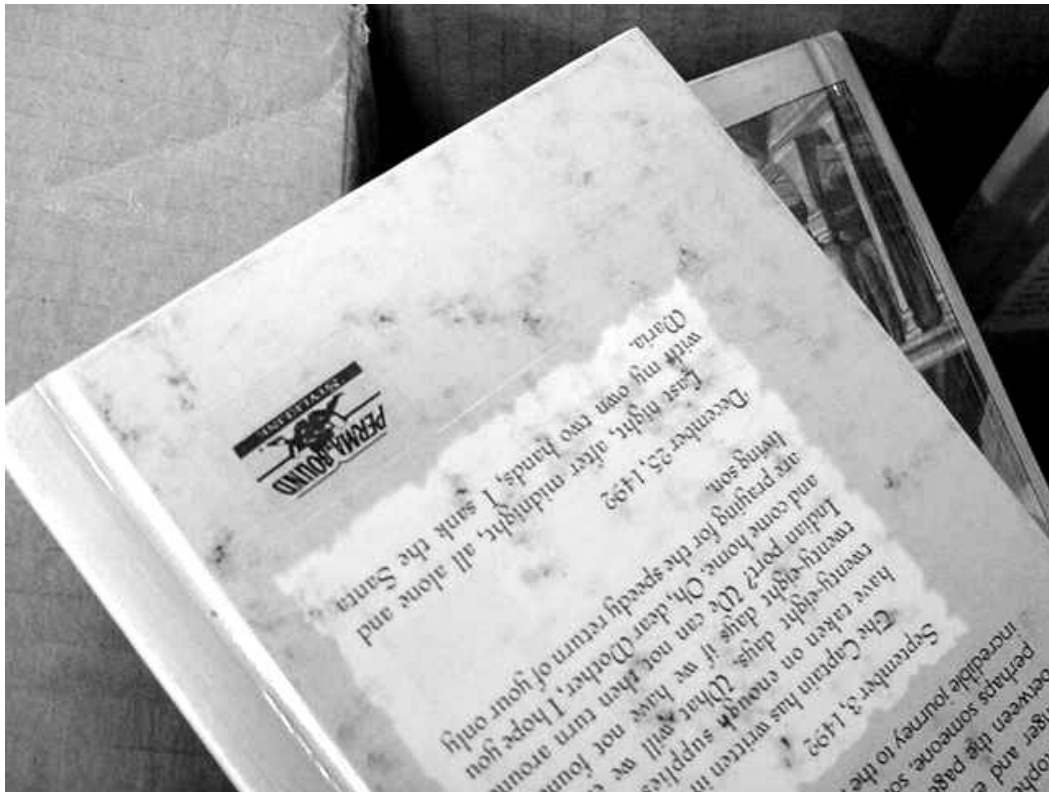 and
between the page
perhaps someone, so
incredible journey to the
September 3, 1492
The Captain has written in
have taken on enough supplies
twenty-eight days. What will
twenty-eight days if we have not foun
Indian port? We can not then turn aroun
and come home. Oh, dear Mother, I hope you
are praying for the speedy return of your only
living son.
December 25, 1492
Last night, after midnight, all alone and
with my own two hands, I sank the Santa
Maria.
PERMA-BOUND
STYLELINE